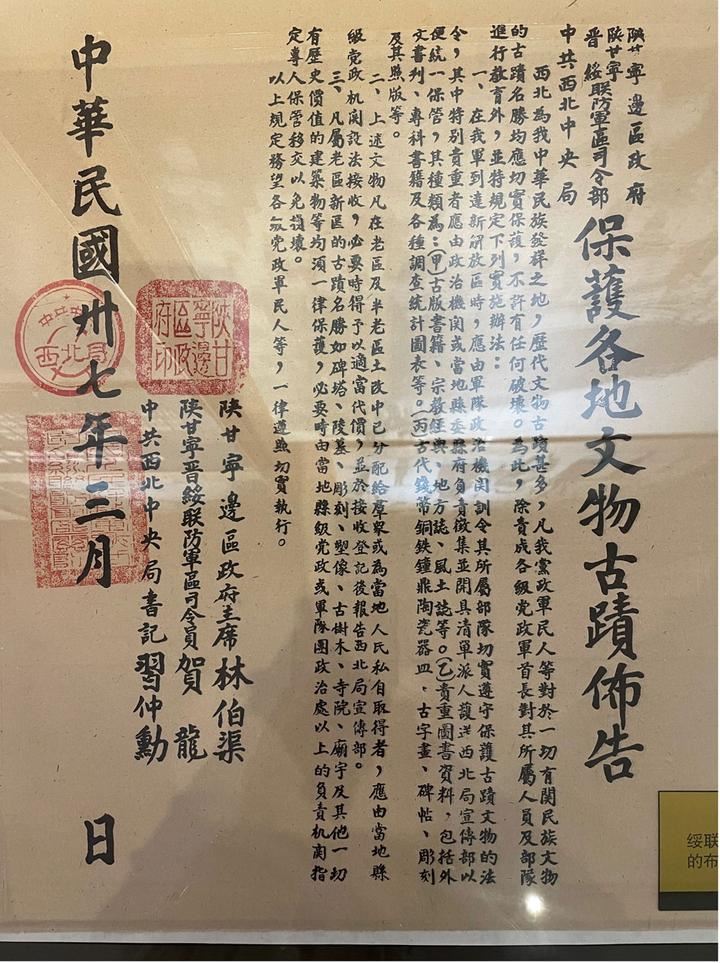 陝甘寧邊區政府
陝甘寧
晉綏联防軍區司令部
中共西北中央局
保護各地文物古蹟佈告
西北為我中華民族發祥之地，歷代文物古蹟甚多，凡我黨政軍民人等對於一切有関民族文物
的古蹟名勝均應切實保護，不許有任何破壞。為此，除責成各級党政軍首長對其所屬人員及部隊
進行教育外，並特規定下列實施辦法：
一、在我軍到達新解放區時，應由軍隊政治機関訓令其所屬部隊切實遵守保護古蹟文物的法
令，其中特别貴重者應由政治機関或當地縣委縣府負責徵集並開具清單派人護送西北局宣傳部以
便統一保管，其種類為：(甲)古版書籍、宗教經典、地方誌、風土誌等。(乙)貴重圖書資料，包括外
文書刋、專科書籍及各種調查統計圖表等。(丙)古代錢幣銅鉄鐘鼎陶瓷器皿、古字畫、碑帖、彫刻
及其照版等。
二、上述文物凡在老區及半老區土改中已分配給羣衆或為當地人民私自取得者，應由當地縣
級党政机関設法接收，必要時得予以適當代價，並於接收登記後報告西北局宣傳部。
三、凡屬老區新區的古蹟名勝如碑塔、陵墓、彫刻、塑像、古樹木、寺院、廟宇及其他一切
有歷史價值的建築物等均須一律保護，必要時由當地縣級党政或軍隊團政治處以上的負責机関指
定專人保管移交以免損壞。
以上規定務望各級党政軍民人等，一律遵照切實執行。
陝甘寧邊區政府主席林伯渠
陝甘寧晉綏联防軍區司令員賀龍
中共西北中央局書記習仲勳
中華民國卅七年三月 日
陝甘寧邊區政府印
西北局
绥联
的布